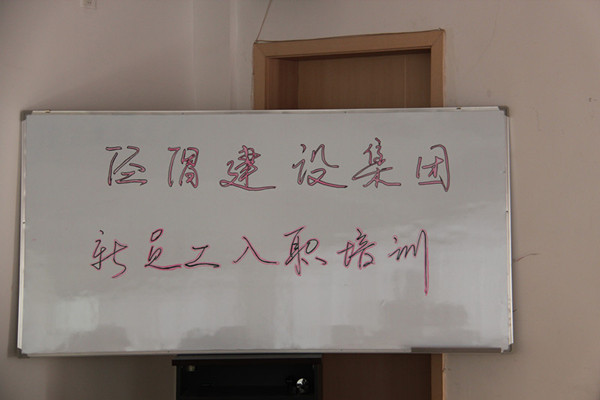 建设集团
新员工入职培训